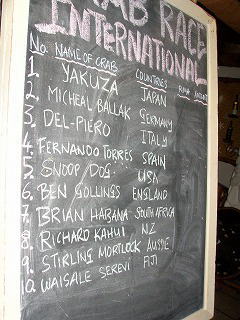 CRAB RACE
INTERNATIONAL
No. NAME OF CRAB COUNTRIES
1. YAKUZA JAPAN
2. MICHEAL BALLAK GERMANY
3. DEL-PIERO ITALY
4. FERNANDO TORRES SPAIN
5. SNOOP DOG. USA
6. BEN GOLLINGS ENGLAND
7. BRIAN HABANA SOUTH AFRICA
8. RICHARD KAHUI NZ
9. STIRLING MORTLOCK AUSSIE
10. WAISALE SEREVI FIJI